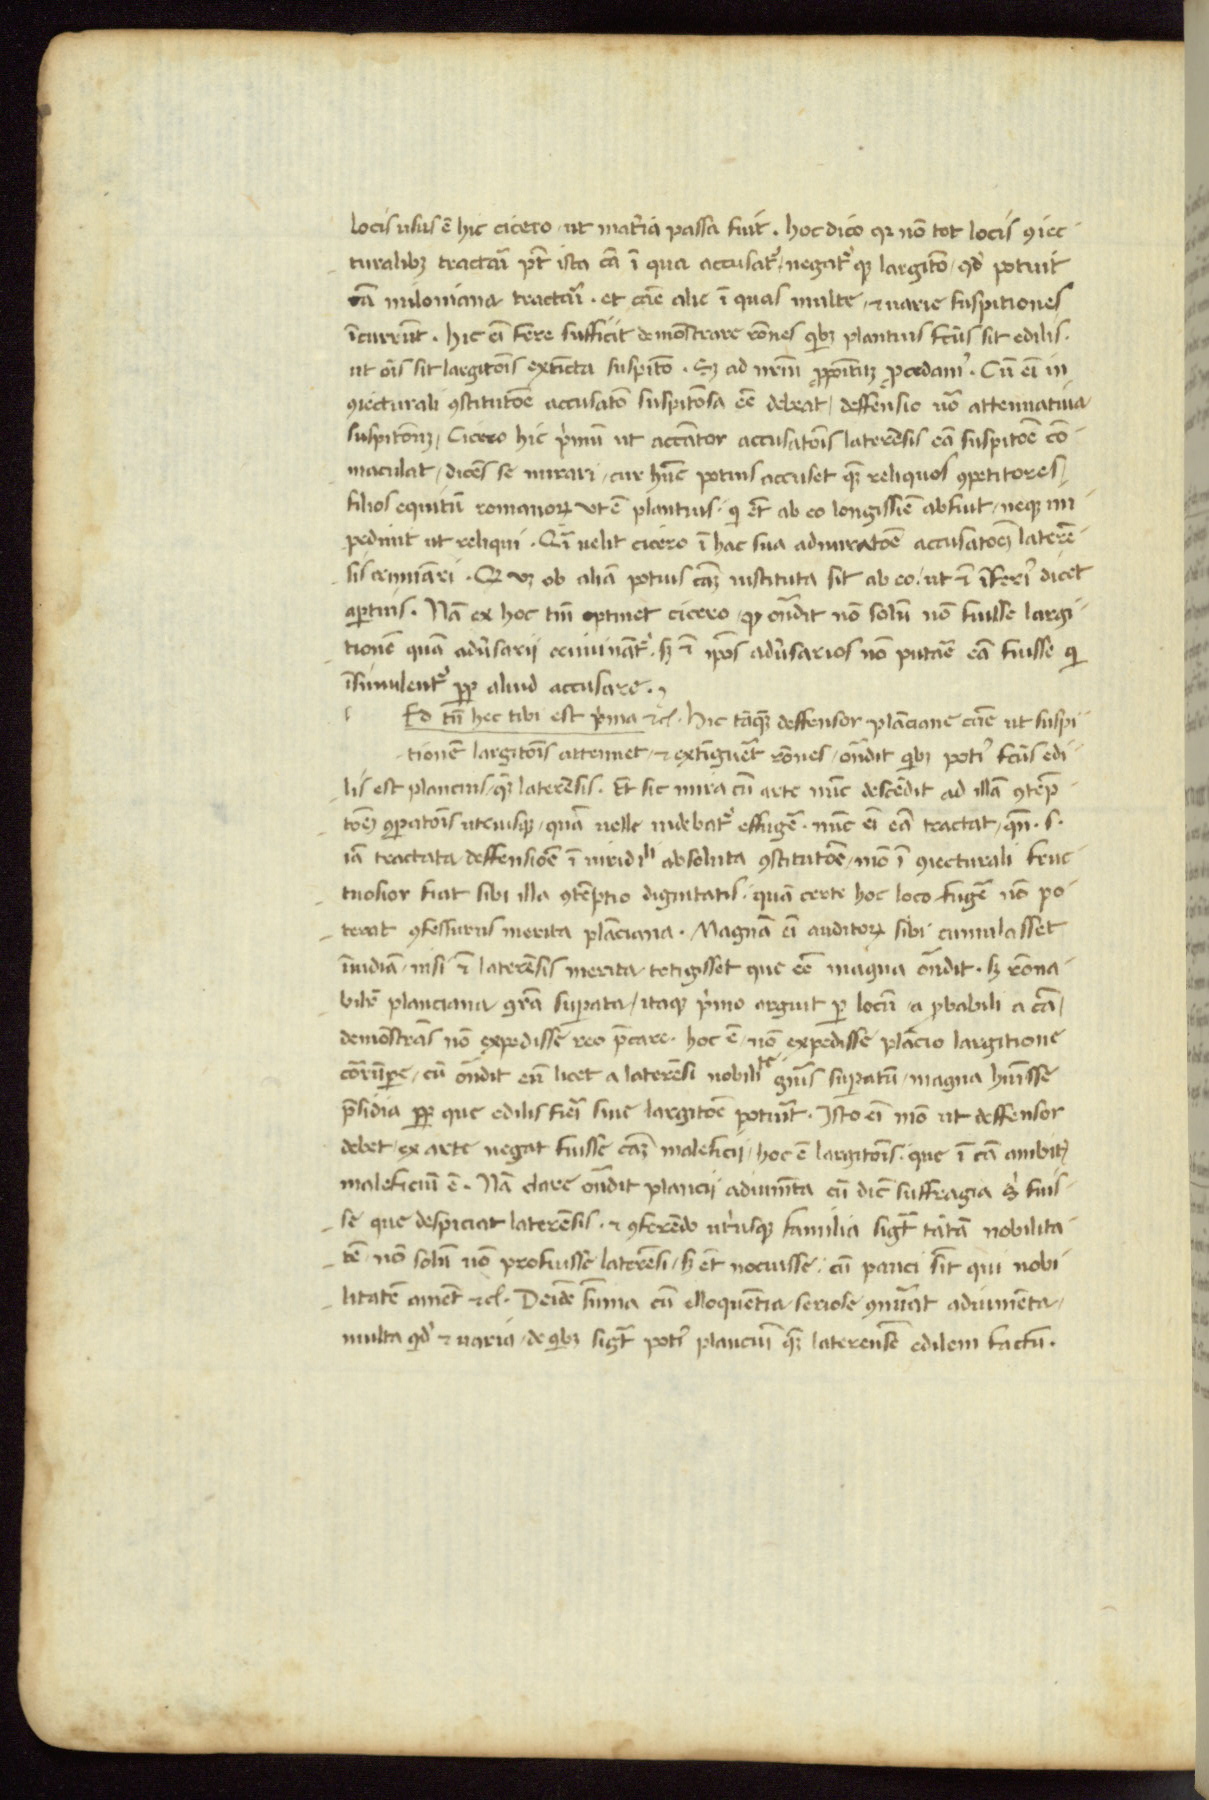 locis usus ē hic cicero, ut mat'ia passa fuit. hoc dico qꝛ nō tot locis ꝯiec-
turalibꝫ tractar̄i pt̄ ista cā ī qua accusat᷑, negat᷑ qꝫ largitō, qd' potuit
cā miloniana tractar̄i. et cāe alie ī quas multe, & uarie suspitiones
īcurrūt. hic eī fere sufficit demōstrare rōnes qibꝫ plantius fc̄us sit edilis.
ut ōis sit largitōis extīcta suspitō. Sꝫ ad nr̄m ꝓpoitum ꝓcedam᷑. Cū eī in
ꝯiecturali ꝯstitutōe accusatō suspitōsa ēe debeat, deffensio uō attenuatiua
suspitōnū, Cicero hic p'mū ut accusator accusatōis laterēsis eā suspitōe cō-
maculat, dicēs se mirari, cur hūc potius accuset qꝫ reliquos ꝯpetitores,
filios equitū romanoꝝ ut ē plantius. qi et̄ ab eo longissime abfuit, neqꝫ im-
pediuit ut reliqui. Qā uelit cicero ī hac sua admiratōe accusatoēꝫ laterē-
sis crimīari. Qꝛ uꝫ ob aliā potius cāꝫ instituta sit ab eo. ut & īferi᷑ dicet
apertius. Nā ex hoc tm̄ optinet cicero, qꝫ ōndit nō solū nō fuisse largi-
tionē quā adūsarii criminat᷑. sꝫ & ipōs adūsarios nō putare eā fuisse qi
īsimulent᷑ ꝓp aliud accusare.
Ed tn̄ hec tibi est p'ma &c. Hic tāqꝫ deffensor plāciane cāe ut suspi-
tionē largitōis attenuet, & extīguēt rōnes, ōndit qibꝫ poti᷑ fc̄us edi-
lis est plancius, qꝫ laterēsis. Et sic mira cū arte nūc descēdit ad illā ꝯtēp-
tōeꝫ ꝯparatōis utriusqꝫ, quā uelle uidebat᷑ effugē. nūc eī eā tractat, qn̄. s.
iā tractata deffensiōe ī iuridili absoluta ꝯstitutōe, mō ī ꝯiecturali fruc-
tuosior fiat sibi illa ꝯtēptio dignitatis. quā certe hoc loco fugē nō po-
terat ꝯfessurus merita plāciana. Magnā eī auditoꝝ sibi cumulasset
īuidiā, nisi & laterēsis merita tetigisset que ēe magna ōndit. sꝫ rōna-
bilē planciana gr̄a superata, itaqꝫ p'mo arguit per locū, a ꝓbabili a cā,
demōstrās nō expedisse reo pc̄care. hoc ē, nō expedisse plācio largitione
corrūpere, cū ōndit eū licet a laterēsi nobilite gn̄is superatū, magna hūisse
p̄sidia ꝓp que edilis fieri sine largitōe potuit. Isto eī mō ut deffensor
debet, ex arte negat fuisse cāꝫ maleficii, hoc ē largitōis. que ī cā ambit᷑
maleficiū ē. Nā clare ōndit plancii adiumēta cū dic̄ suffragia s' fuis-
se que despiciat laterēsis. & ꝯferēdo ut'iusqꝫ familia sigt̄ tātā nobilita-
tē, nō solū nō profuisse laterēsi, sꝫ et̄ nocuisse, cū pauci sīt qui nobi-
litatē ament &c. Deīde sūma cū elloquentia seriose ꝯnūat adiumēta,
multa qd' & uaria, de qibꝫ sigt̄ poti᷑ planciū qꝫ laterensē edilem factū.